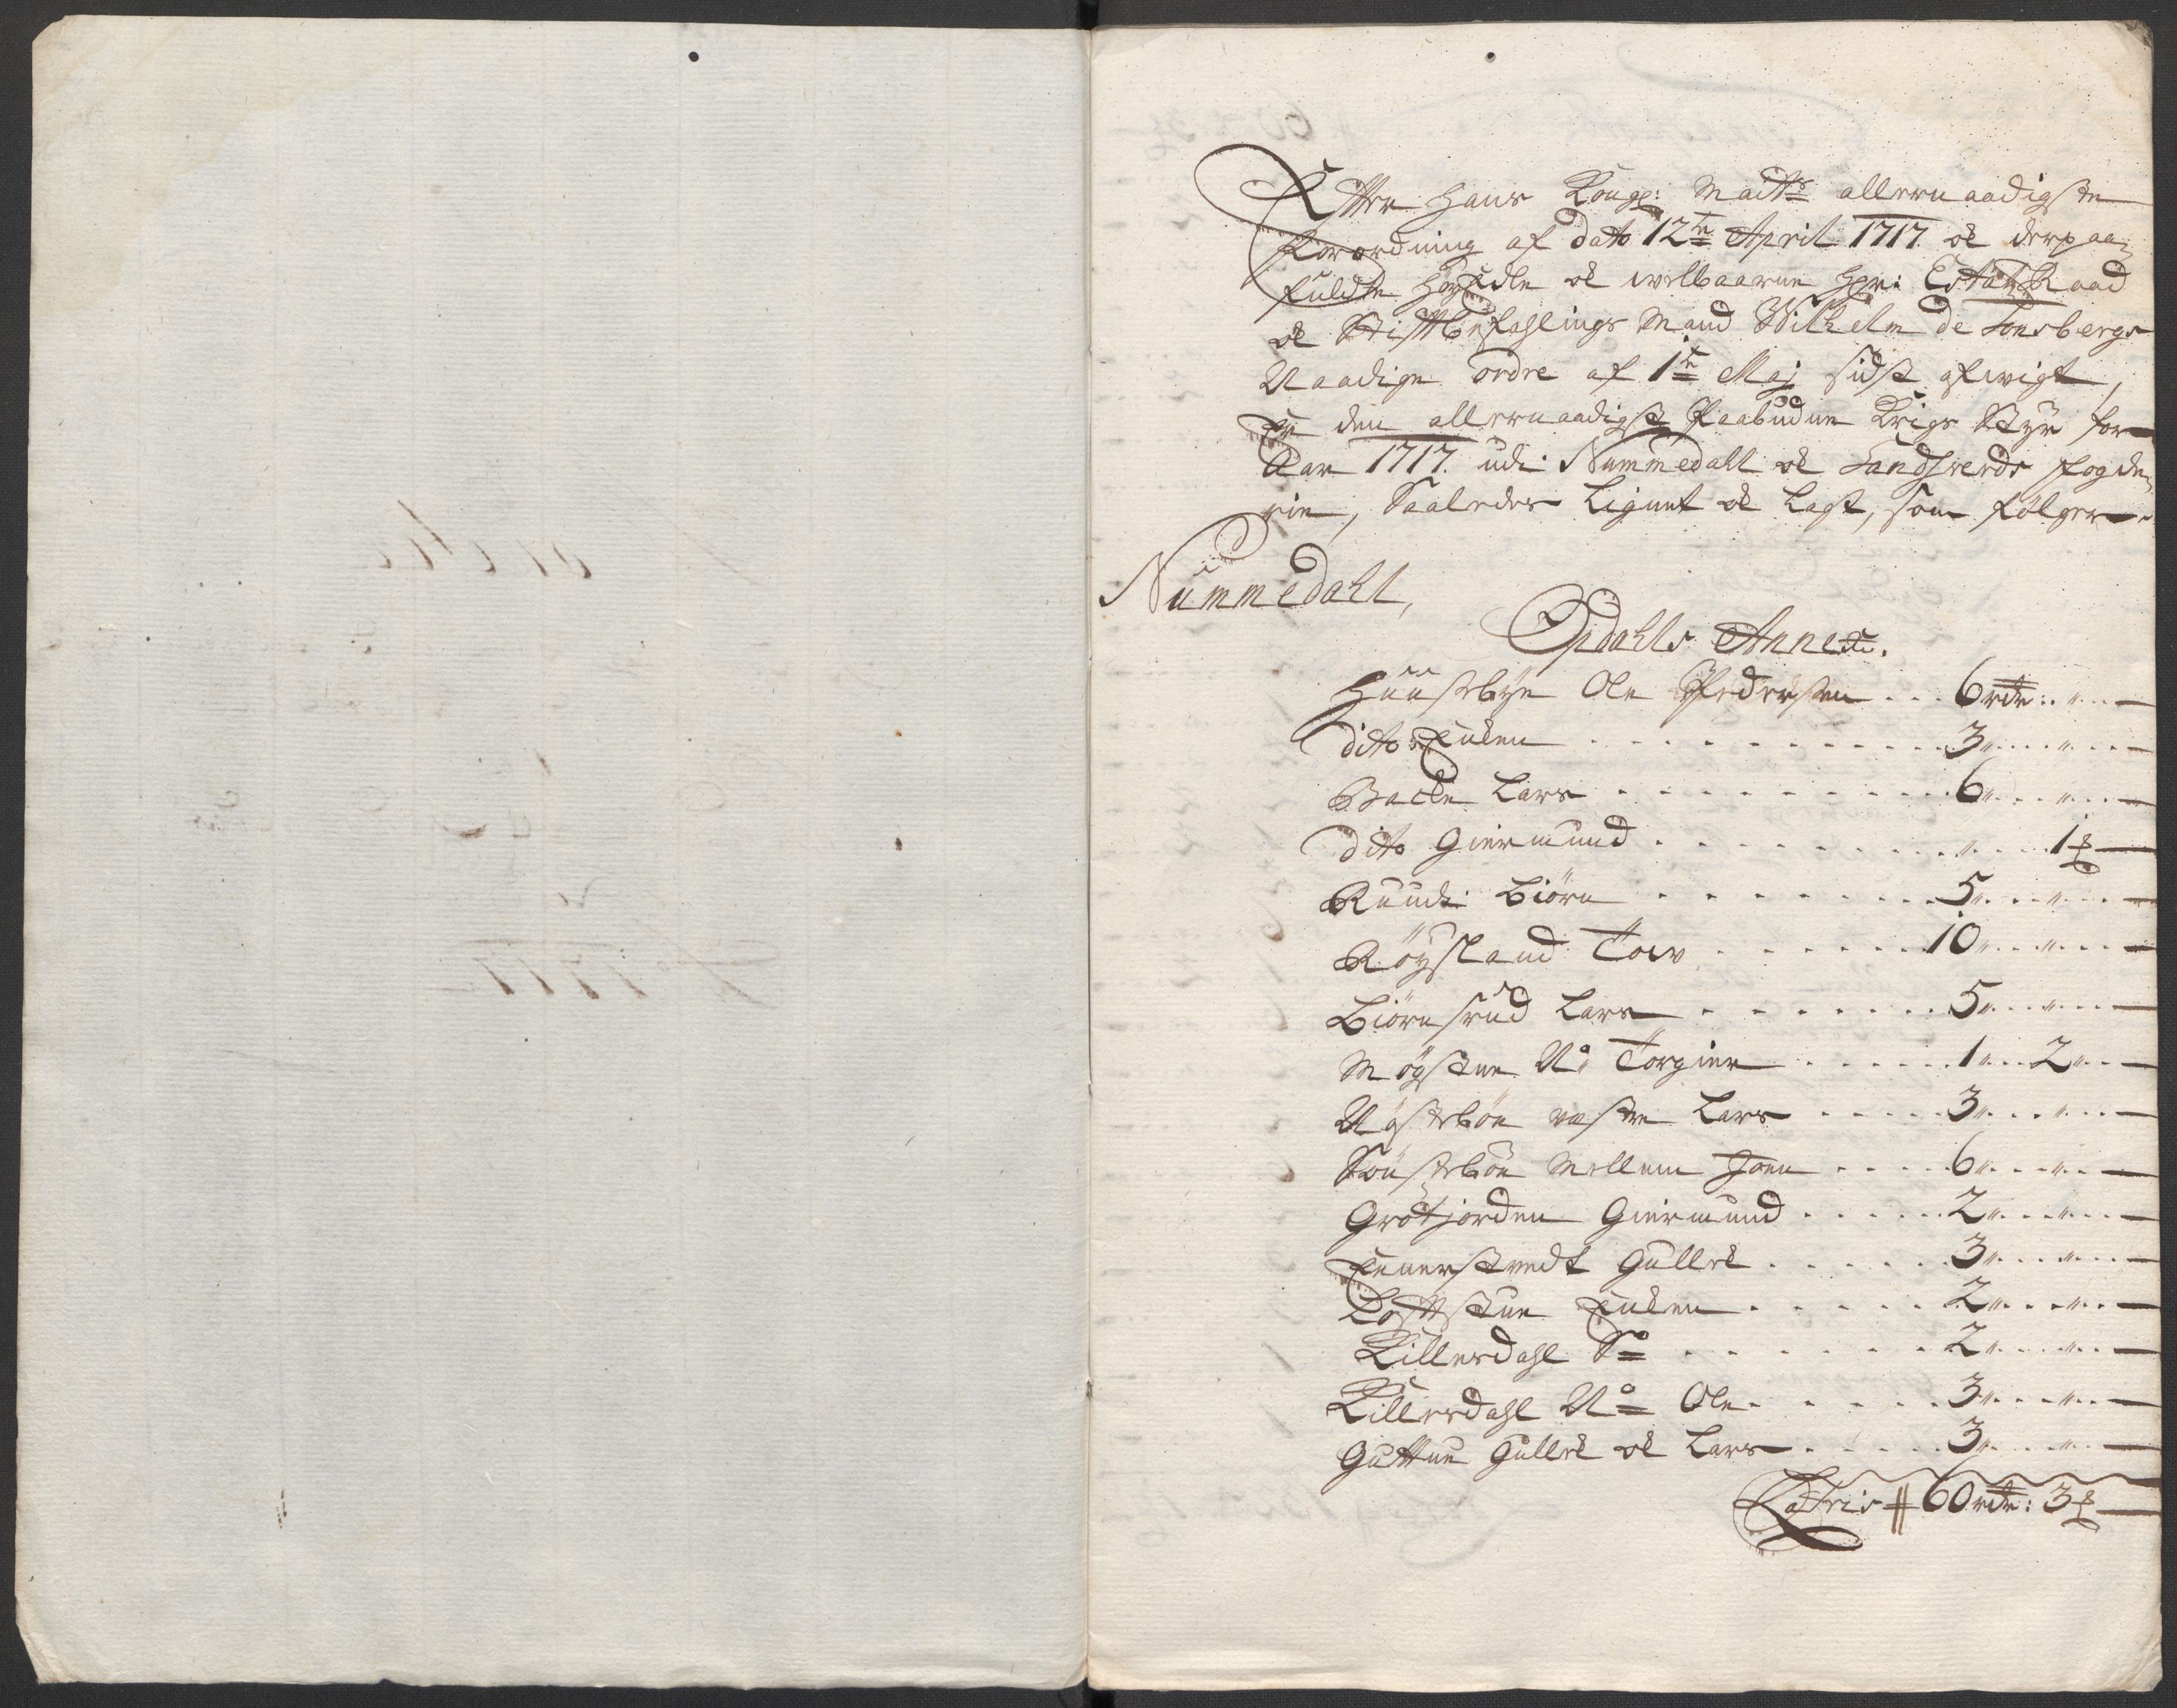 Efter Hans Kongl: Maitts allernaadigste
Forordning af dato 12te April 1717 ok derpaa
fuldte Høyædle ok welbaarne Hr: EstatzRaad
ok Stiftbefahlings Mand Wilhelm de Tonsbergs
Naadige ordre af 1te Maj sidst afwigt,
Er den allernaadigst Paabudne Krigs Styr for
Aar 1717. udi Nummedahl ok Sandsverds fogde-
rie, Saaledes Lignet ok Lagt, som følger
Nummedahl,
Opdahls Annex.
Huusebye Ole Pedersen . . . 6 rdr: „ —
dito Enken . . . 3 „ „ —
Backe Lars . . . 6 „ „ —
dito Giermund . . . „ 1 ß —
Ruudi Biørn . . . 5 „ „ —
Røysland Tov . . . 10 „ „ —
Biørnsrud Lars . . . 5 „ „ —
Møgstue No Torgier . . . 1 „ 2 „ —
Nøstebøe vestre Lars . . . 3 „ „ —
Søustebøe Mellem Joen . . . 6 „ „ —
Grotjorden Giermund . . . 2 „ „ —
Enerstvedt Gullek . . . 3 „ „ —
Loftstue Enken . . . 2 „ „ —
Killerdahl So . . . 2 „ „ —
Killerdahl No Ole . . . 3 „ „ —
Guttue Gullek ok Lars . . . 3 „ „ —
Latris 60 rdr: 3 ß —